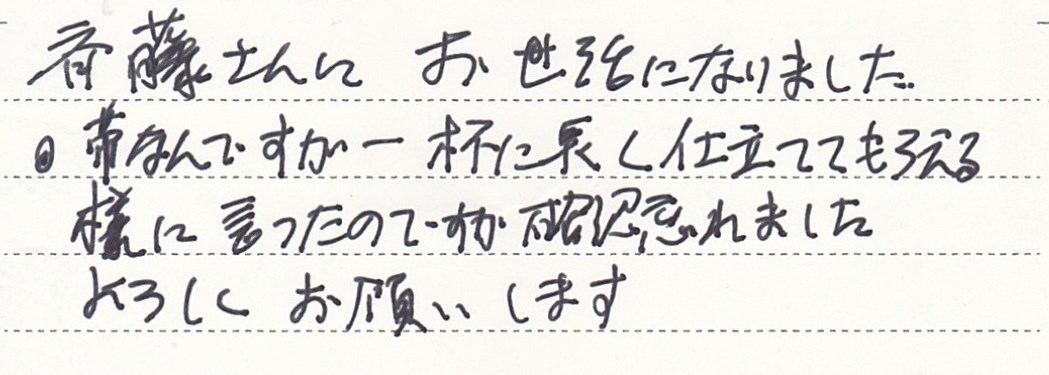 斉藤さんに お世話になりました
帯なんですが一杯に長く仕立ててもらえる
様に言ったのですが確認忘れました
よろしく お願いします